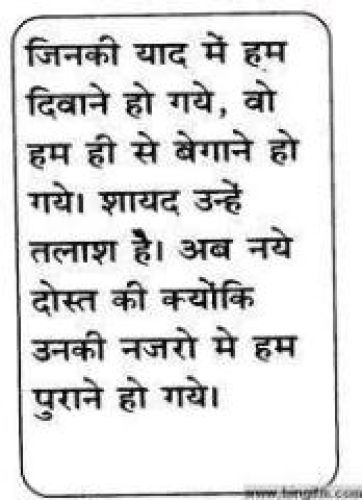 जिनकी याद में हम
दिवाने हो गये, वो
हम ही से बेगाने हो
गये। शायद उन्हें
तलाश है। अब नये
दोस्त की क्योंकि
उनकी नजरो मे हम
पुराने हो गये।